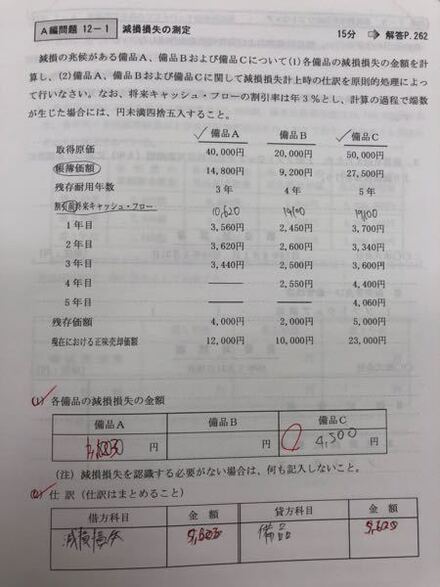 A編問題 12－1 減損損失の測定 15分 ⇨ 解答P.262
減損の兆候がある備品A、備品Bおよび備品Cについて(1)各備品の減損損失の金額を計
算し、(2)備品A、備品Bおよび備品Cに関して減損損失計上時の仕訳を原則的処理によっ
て行いなさい。なお、将来キャッシュ・フローの割引率は年3％とし、計算の過程で端数
が生じた場合には、円未満四捨五入すること。
備品A 備品B 備品C
取得原価 40,000円 20,000円 50,000円
帳簿価額 14,800円 9,200円 27,500円
残存耐用年数 3年 4年 5年
割引前将来キャッシュ・フロー 10,620 19,100
1年目 3,560円 2,450円 3,700円
2年目 3,620円 2,600円 3,340円
3年目 3,440円 2,500円 3,600円
4年目 ―― 2,550円 4,400円
5年目 ―― ―― 4,060円
残存価額 4,000円 2,000円 5,000円
現在における正味売却価額 12,000円 10,000円 23,000円
(1) 各備品の減損損失の金額
備品A 備品B 備品C
円 円 4,500 円
(注) 減損損失を認識する必要がない場合は、何も記入しないこと。
(2) 仕訳(仕訳はまとめること)
借方科目 金額 貸方科目 金額
減損損失 備品